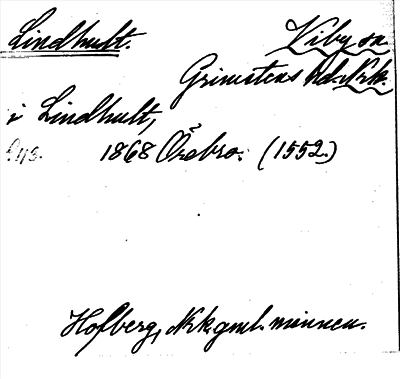 Lindhult. Viby sn.
Grimstens hd. Nrk.
i Lindhult,
1868 Örebro. (1552.)
Hofberg, Nrk gml. minnen.